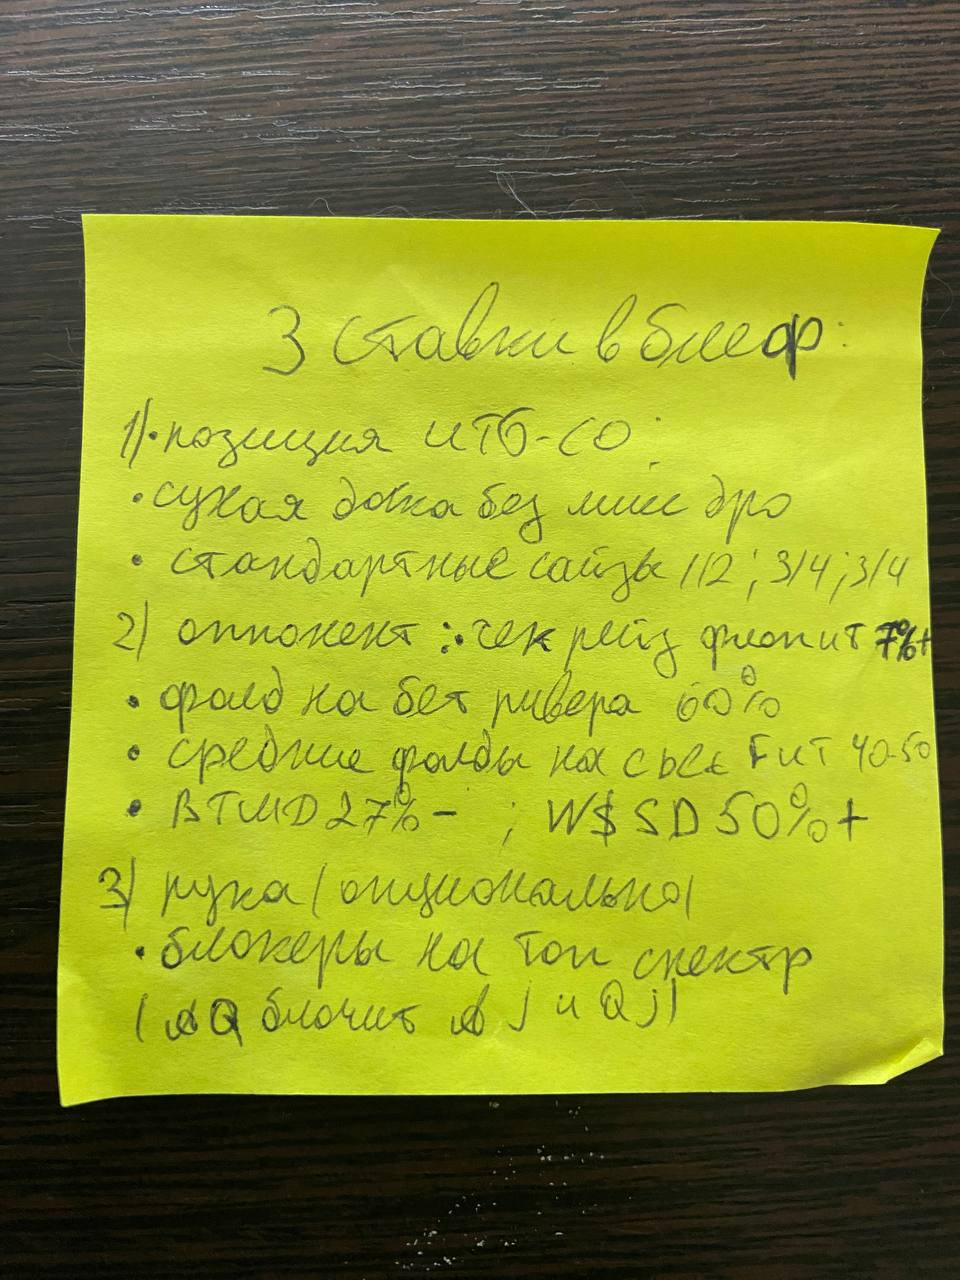 3 ставки в блеф:
1) • позиция UTG-CO;
• сухая доска без мис дро
• стандартные сайзы 1/2; 3/4; 3/4
2) оппонент: • чек рейз флоп ит 7%+
• фолд на бет ривера 60%
• средние фолды на сbet FиT 40-50
• ВТШД 27%- ; W$SD 50%+
3) рука (опционально)
• блокеры на топ спектр
(AQ блочит AJ и QJ)